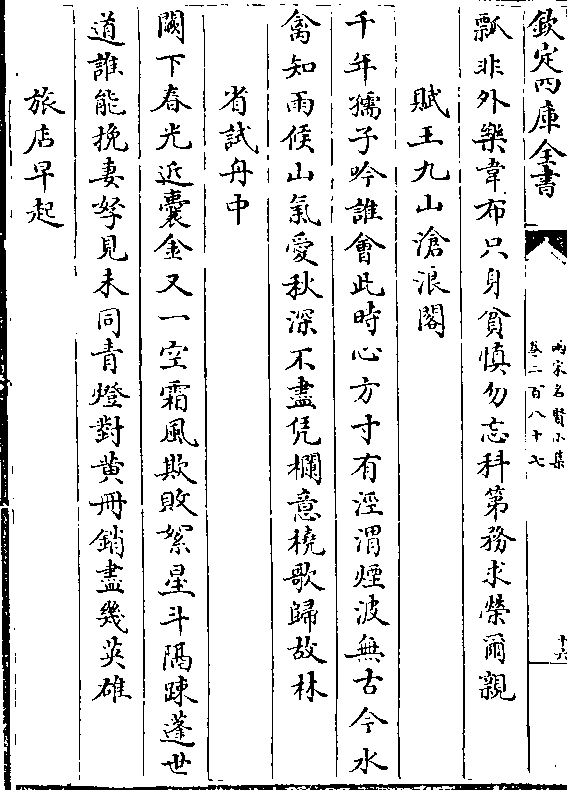 欽定四庫全書
兩宋名賢小集
卷二百八十七
十六
瓢非外樂韋布只身貧慎勿忘科第務求榮爾親
賦王九山滄浪閣
千年孺子吟誰會此時心方寸有涇渭煙波無古今水
禽知雨候山氣愛秋深不盡凭欄意橈歌歸故林
省試舟中
闕下春光近囊金又一空霜風欺敗絮星斗隔踈蓬世
道誰能挽妻孥見未同青燈對黄冊銷盡幾英雄
旅店早起